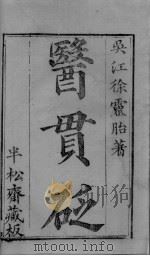 吳江徐靈胎著
醫貫砭
半松齋藏板
www.toouu.com